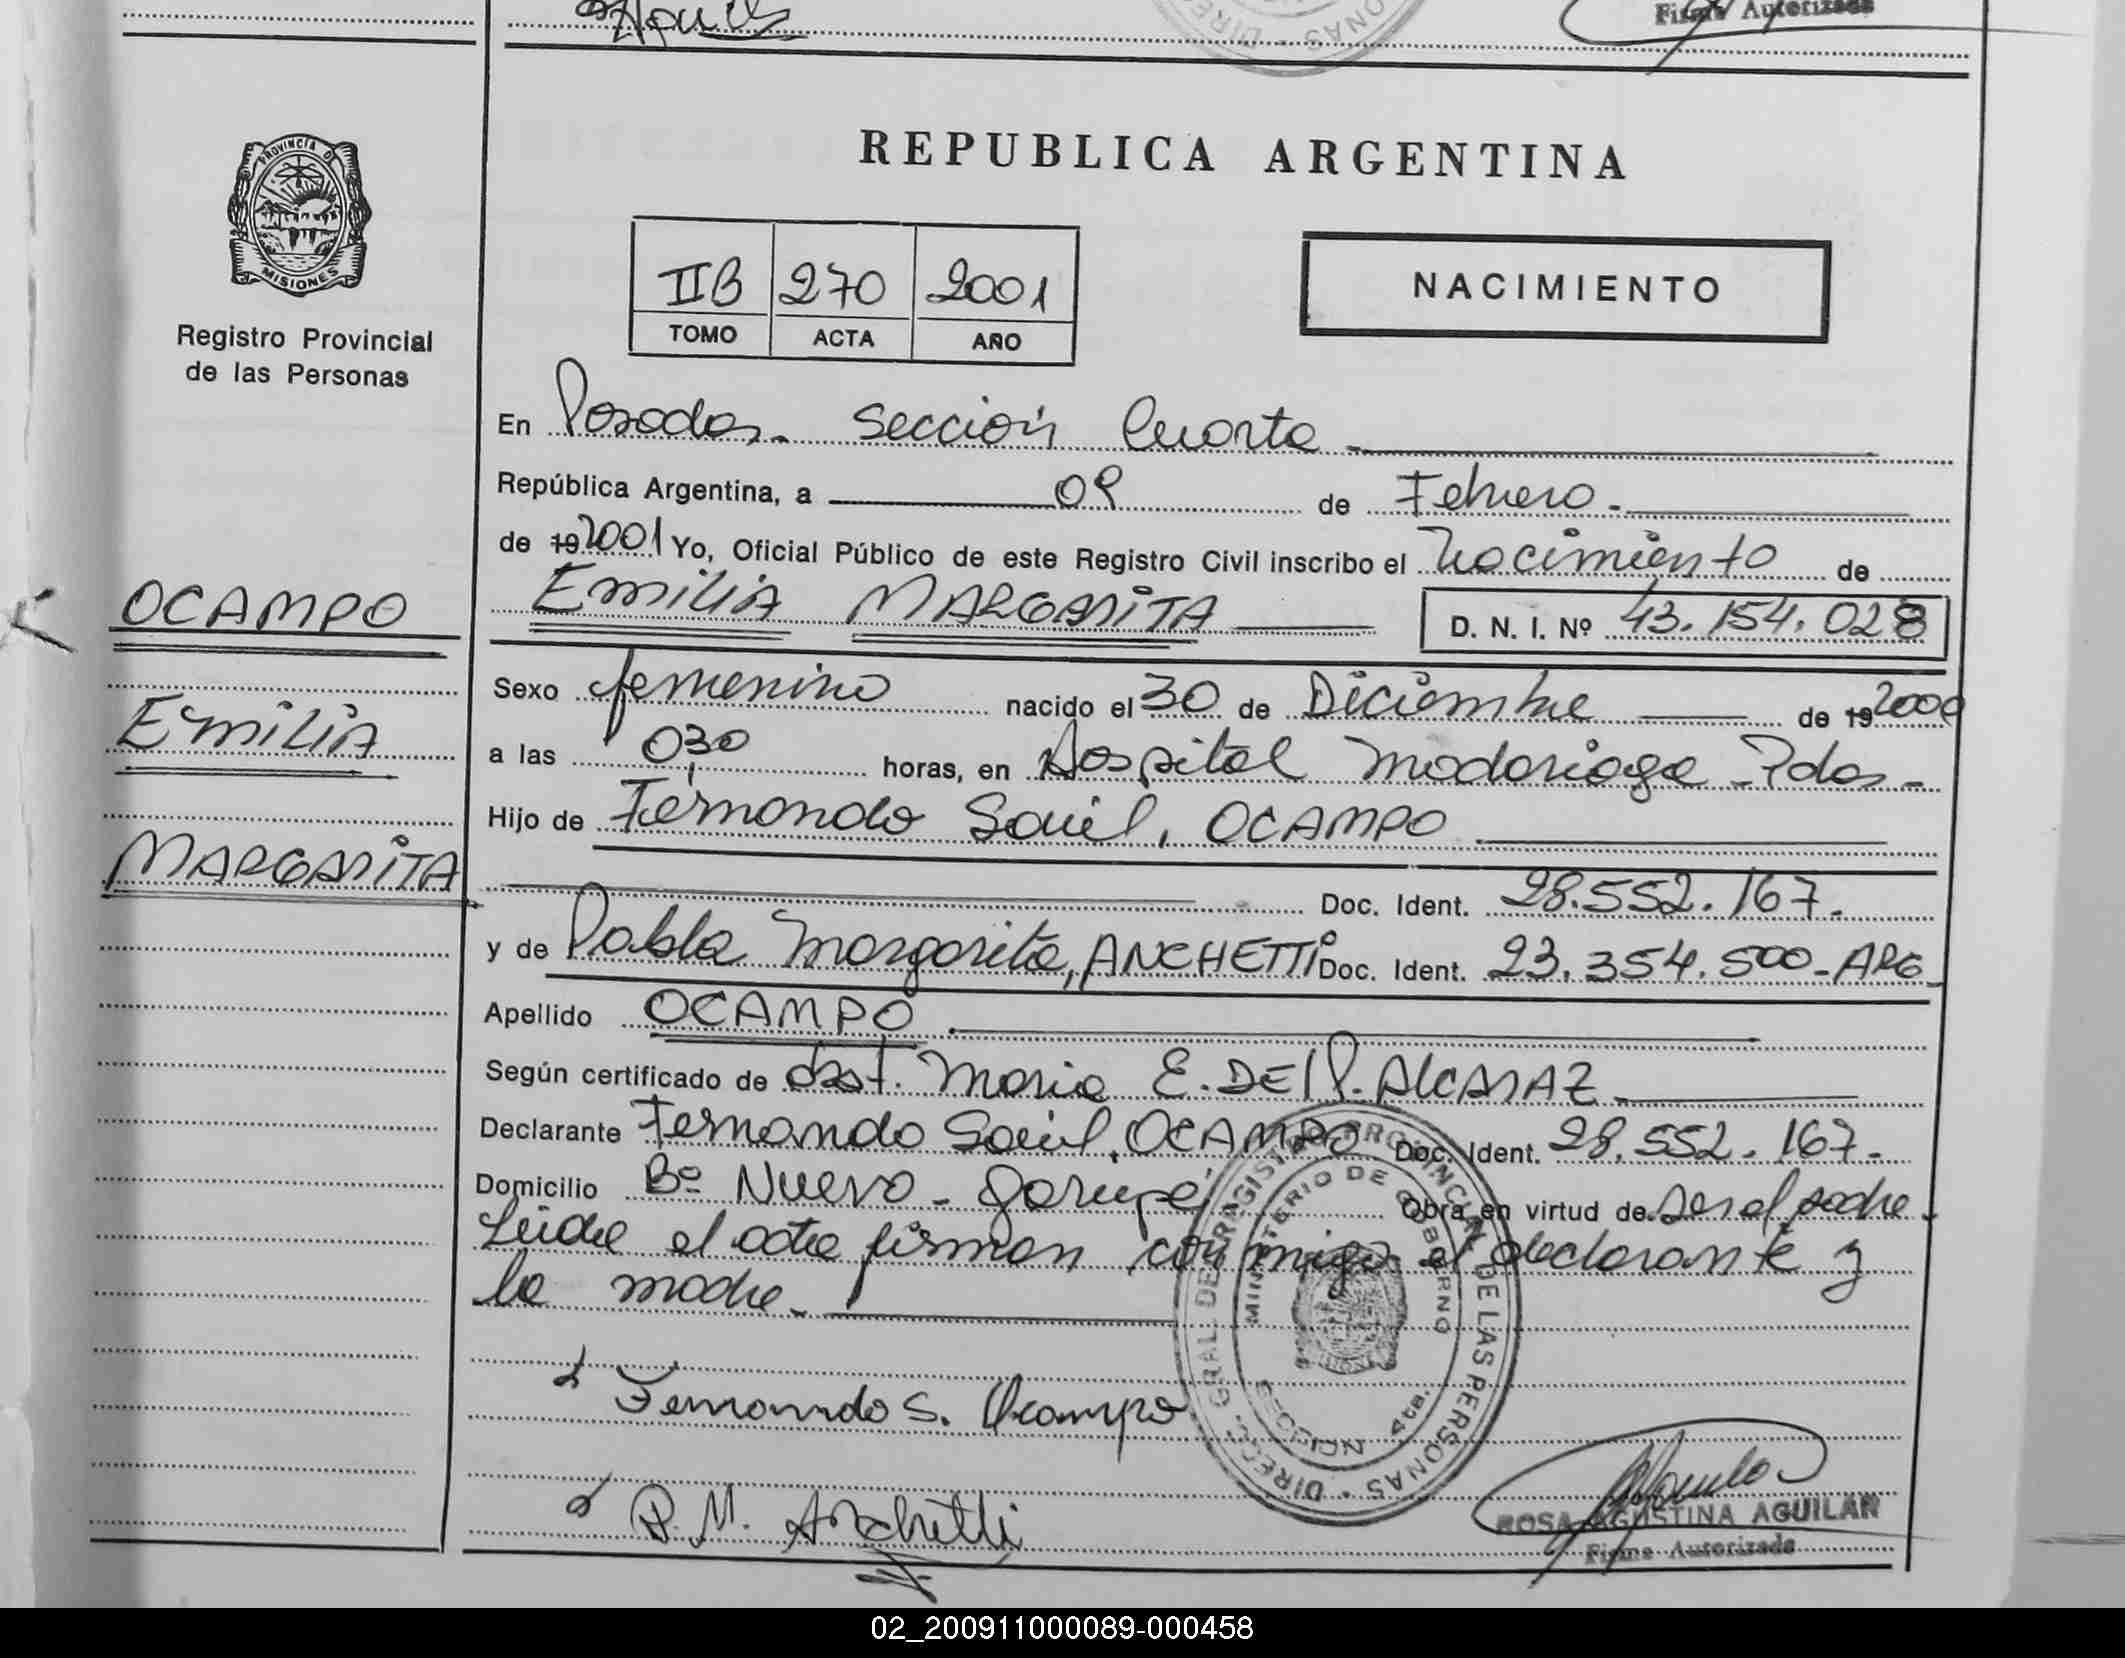 Firma Autorizada
PROVINCIA D
MISIONES
Registro Provincial
de las Personas
REPUBLICA ARGENTINA
IIB 270 2001
TOMO ACTA AÑO
NACIMIENTO
En Posadas. Sección Cuarta
República Argentina, a 09 de Febrero.
de 19 2001 Yo, Oficial Público de este Registro Civil inscribo el Nacimiento de
EMILIA MARGARITA D. N. I. Nº 43.154.028
OCAMPO
EMILIA
MARGARITA
Sexo femenino nacido el 30 de Diciembre de 19 2000
a las 0,30 horas, en Hospital Madariaga - Pdas -
Hijo de Fernando Saúl, OCAMPO
Doc. Ident. 28.552.167.
y de Pabla Margarita, ANCHETTI Doc. Ident. 23.354.500-ARG
Apellido OCAMPO
Según certificado de Obst. Maria E. DEL P. ALCARAZ
Declarante Fernando Saúl, OCAMPO Doc. Ident. 28.552.167.
Domicilio Bº Nuevo - Garupá Obra en virtud de ser el padre.
Leída el acta firman conmigo el declarante y
la madre.
DIREC. GRAL. DEL REGISTRO PROVINCIAL DE LAS PERSONAS
MINISTERIO DE GOBIERNO
SECCION 4ta.
Fernando S. Ocampo
P. M. Anchetti
ROSA AGUSTINA AGUILAR
Firma Autorizada
02_200911000089-000458